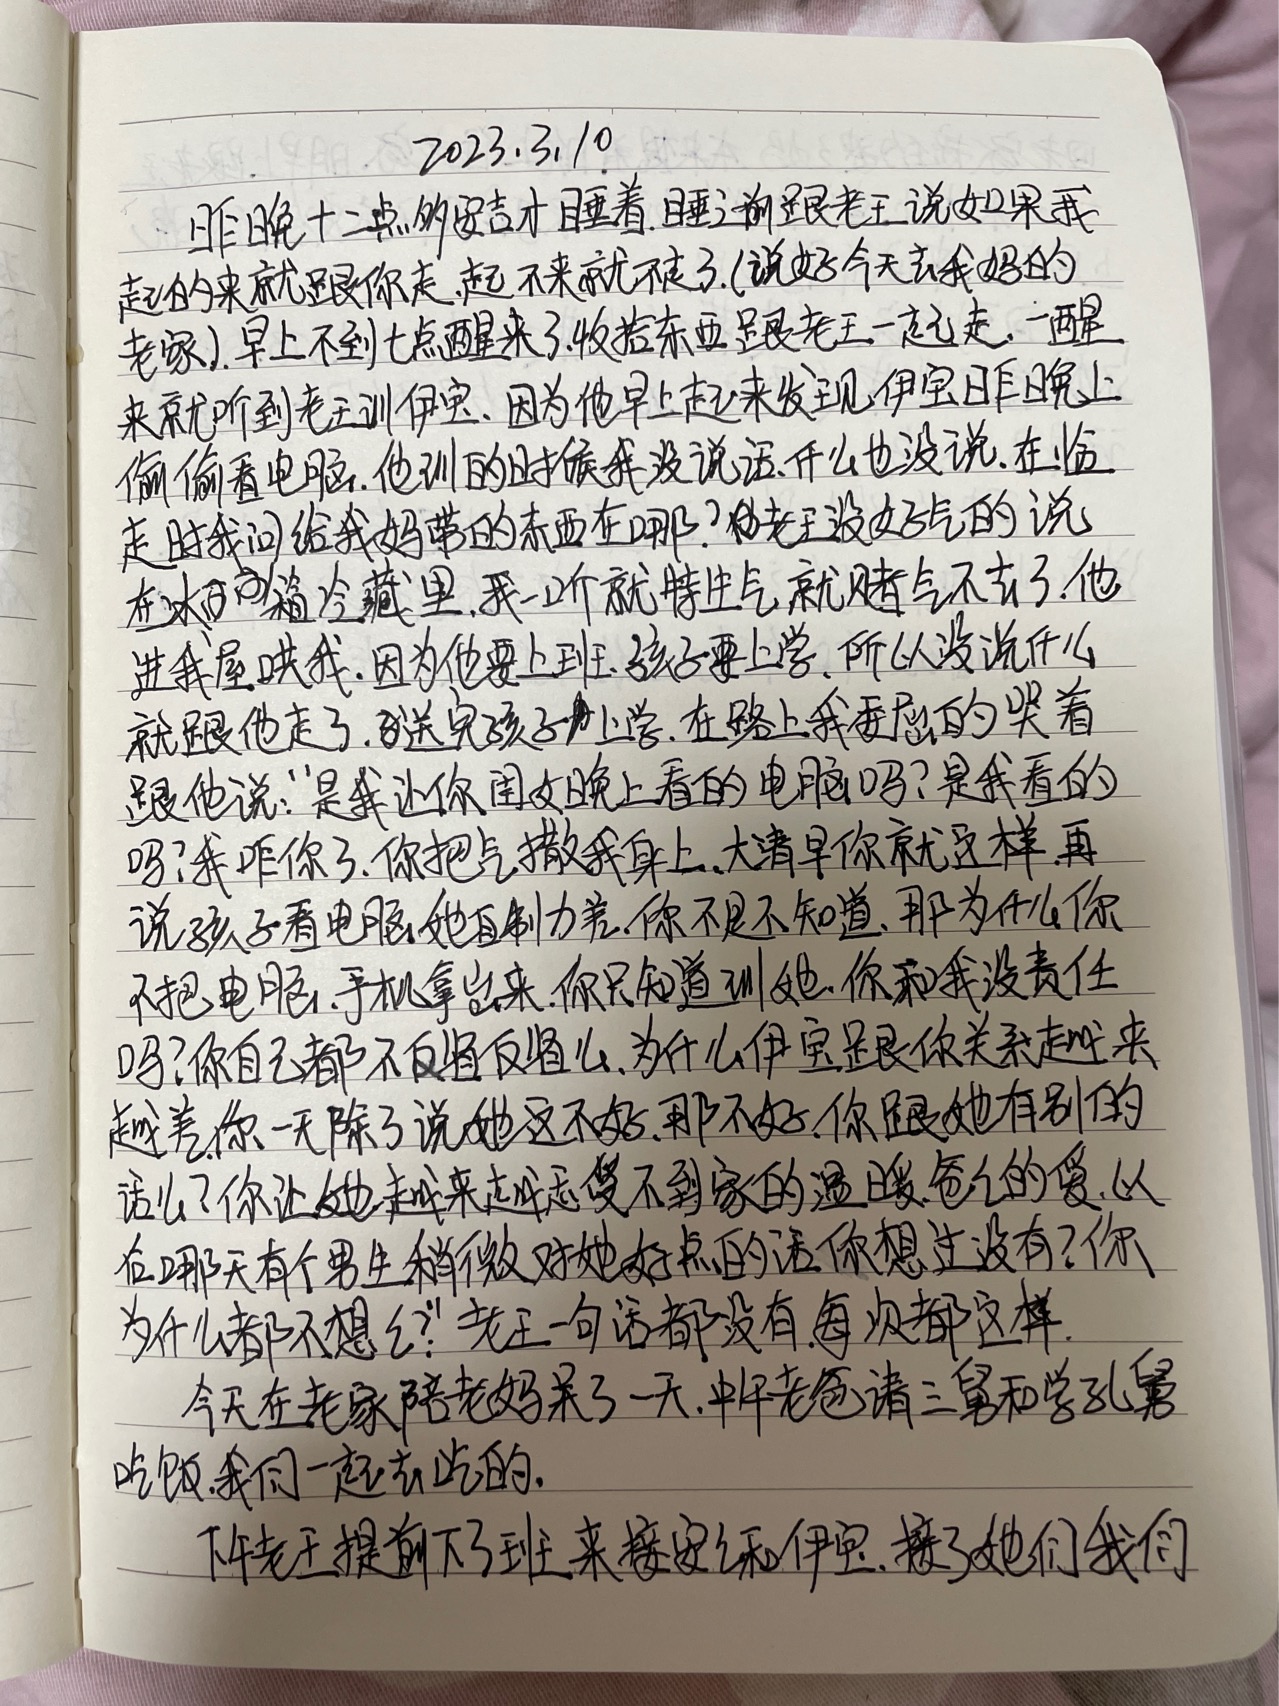 2023.3.10
昨晚十二点多安吉才睡着.睡之前跟老王说如果我
起的来就跟你走.起不来就不走了.(说好今天去我妈的
老家).早上不到七点醒来了.收拾东西跟老王一起走.一醒
来就听到老王训伊宝.因为他早上起来发现伊宝昨晚上
偷偷看电脑.他训的时候我没说话.什么也没说.在临
走时我问给我妈带的东西在哪?老王没好气的说
在冰箱冷藏里.我一听就特生气就赌气不去了.他
进我屋哄我.因为他要上班.孩子要上学.所以没说什么
就跟他走了.送完孩子上学.在路上我委屈的哭着
跟他说:"是我让你闺女晚上看的电脑吗?是我看的
吗?我咋你了.你把气撒我身上.大清早你就这样.再
说孩子看电脑.她自制力差.你不是不知道.那为什么你
不把电脑.手机拿出来.你只知道训她.你和我没责任
吗?你自己都不反省反省么.为什么伊宝跟你关系越来
越差.你一天除了说她这不好.那不好.你跟她有别的
话么?你让她越来越感受不到家的温暖.爸爸的爱.以
后哪天有个男生稍微对她好点的话你想过没有?你
为什么都不想想?"老王一句话都没有.每次都这样.
今天在老家陪老妈呆了一天.中午老爸请三舅和学孔舅
吃饭.我们一起去吃的.
下午老王提前下了班来接安安和伊宝.接了她们我们